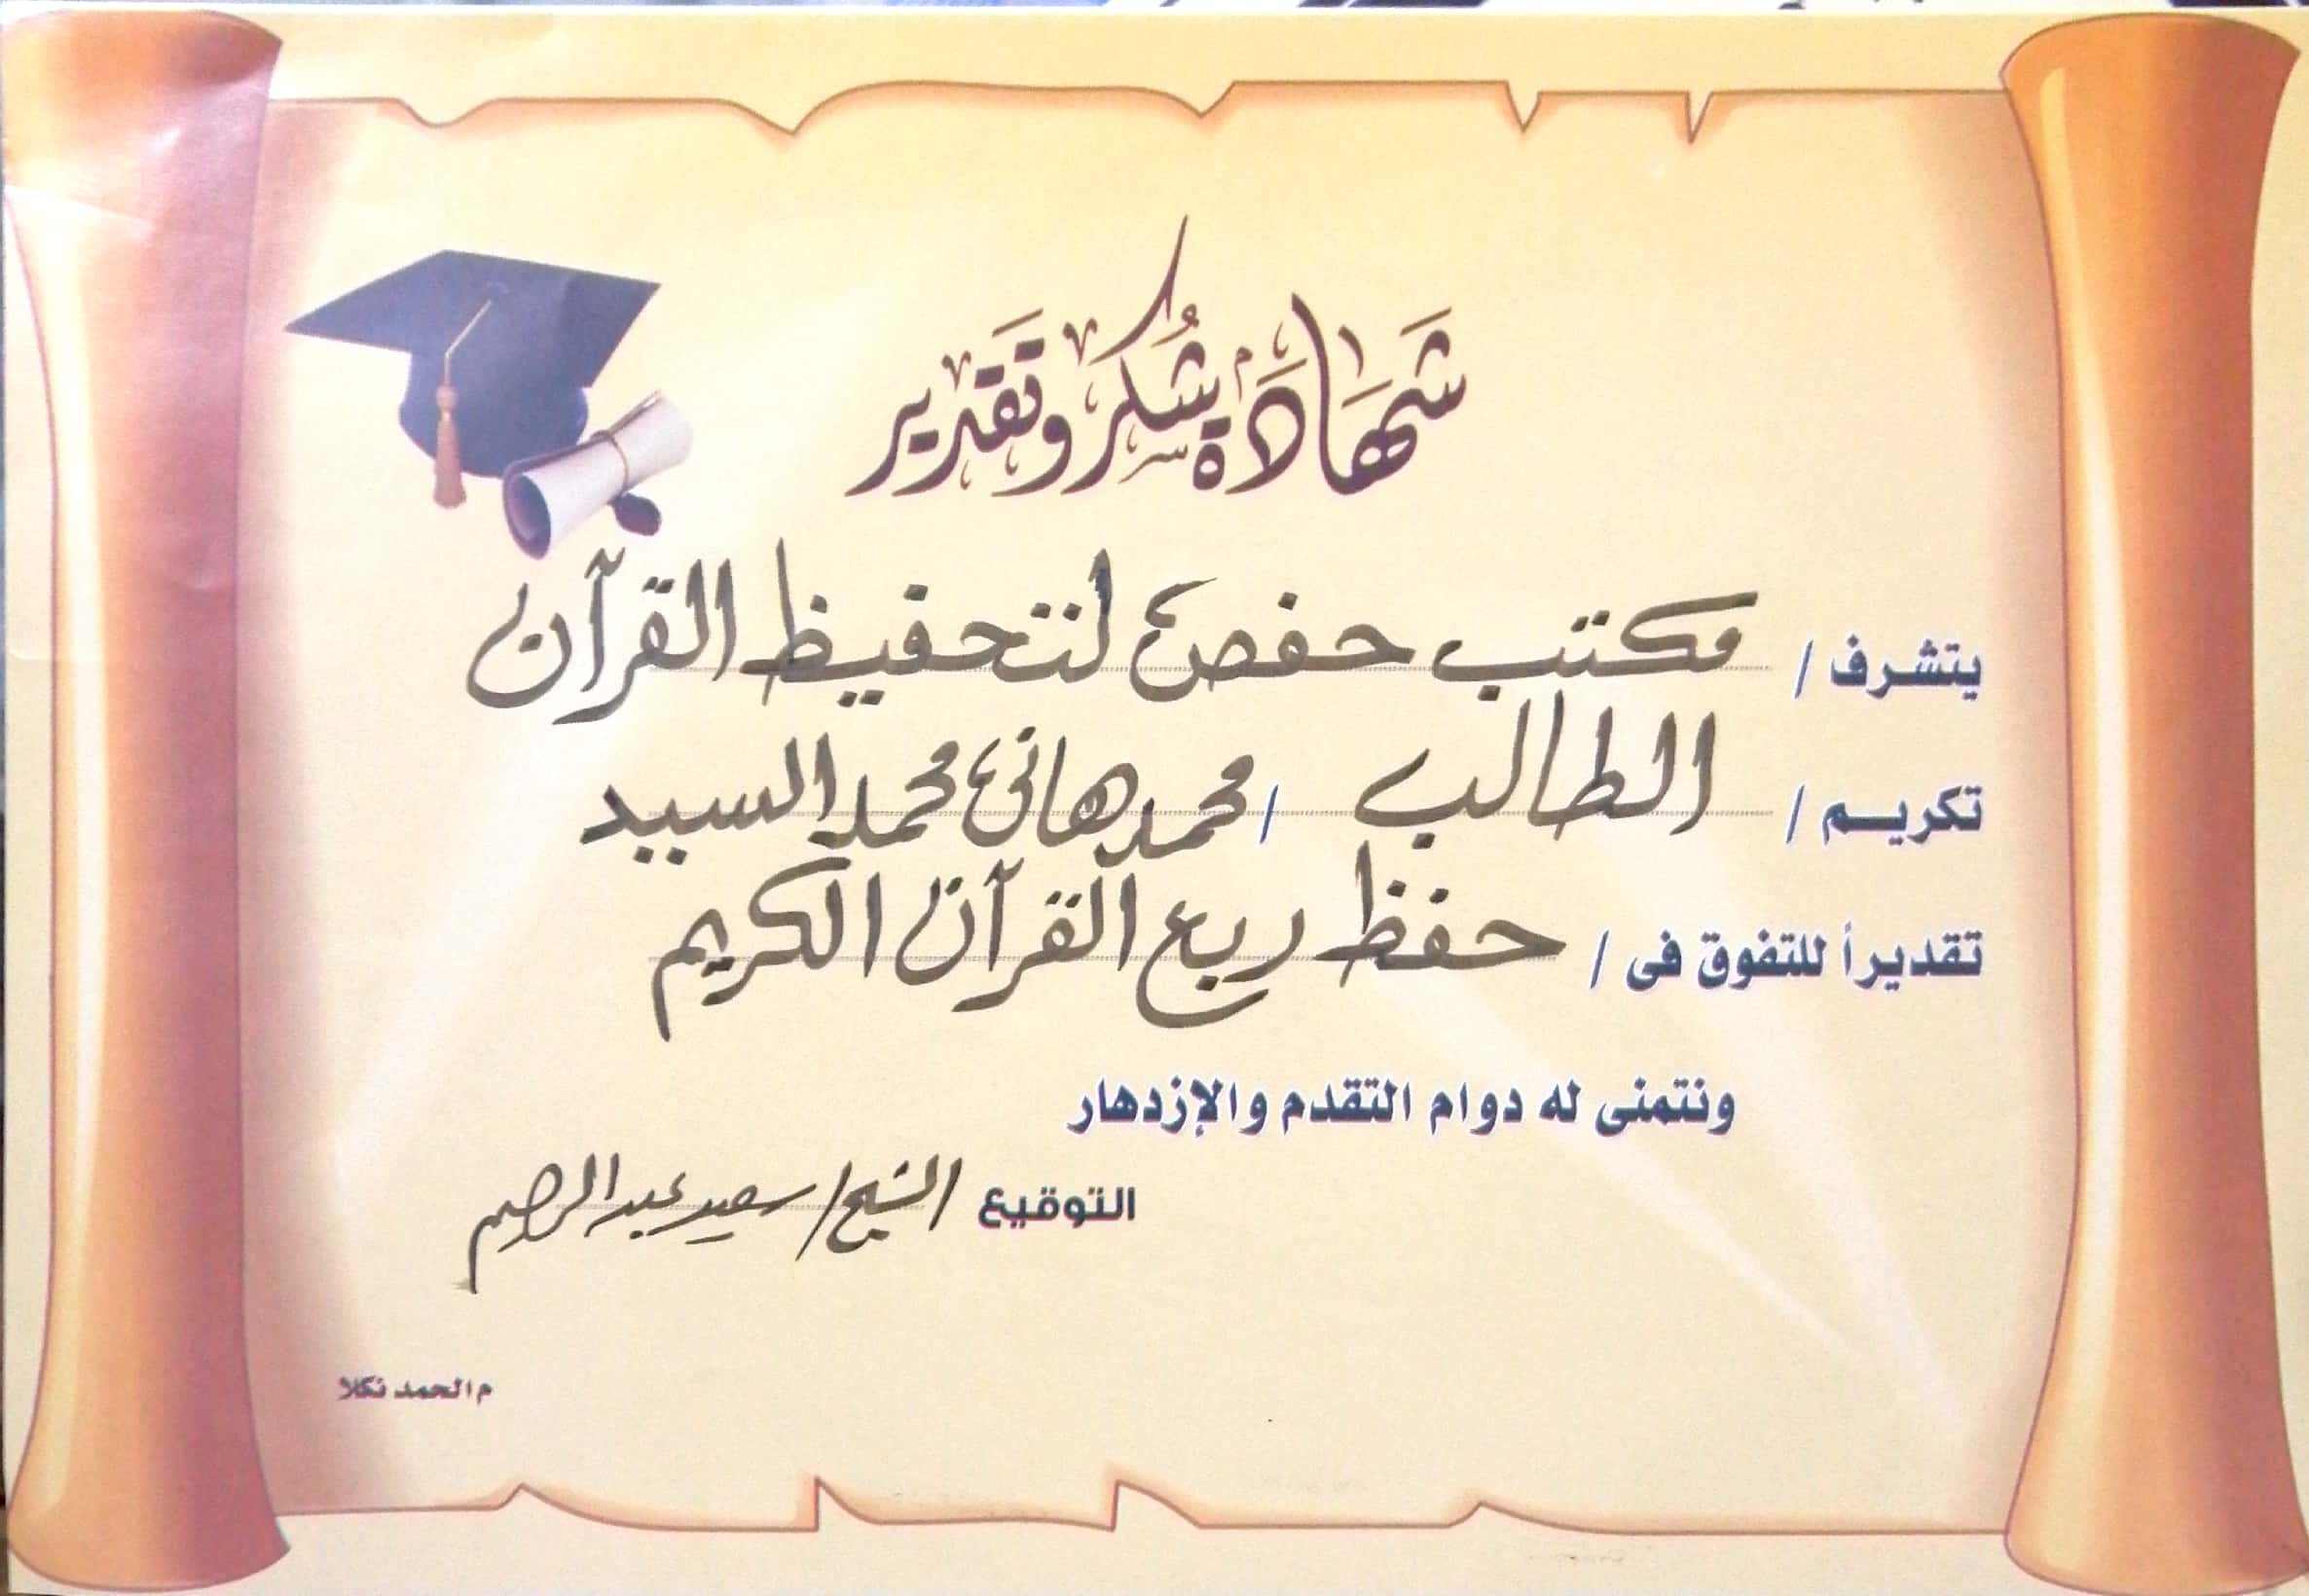 شَهَادَةُ شُكْرٍ وَتَقْدِير
يتشرف / مكتب حفص لتحفيظ القرآن
تكريم / الطالب / محمد هانئ محمد السيد
تقديراً للتفوق فى / حفظ ربع القرآن الكريم
ونتمنى له دوام التقدم والإزدهار
التوقيع الشيخ / سعيد عبد الرحيم
م الحمد نكلا